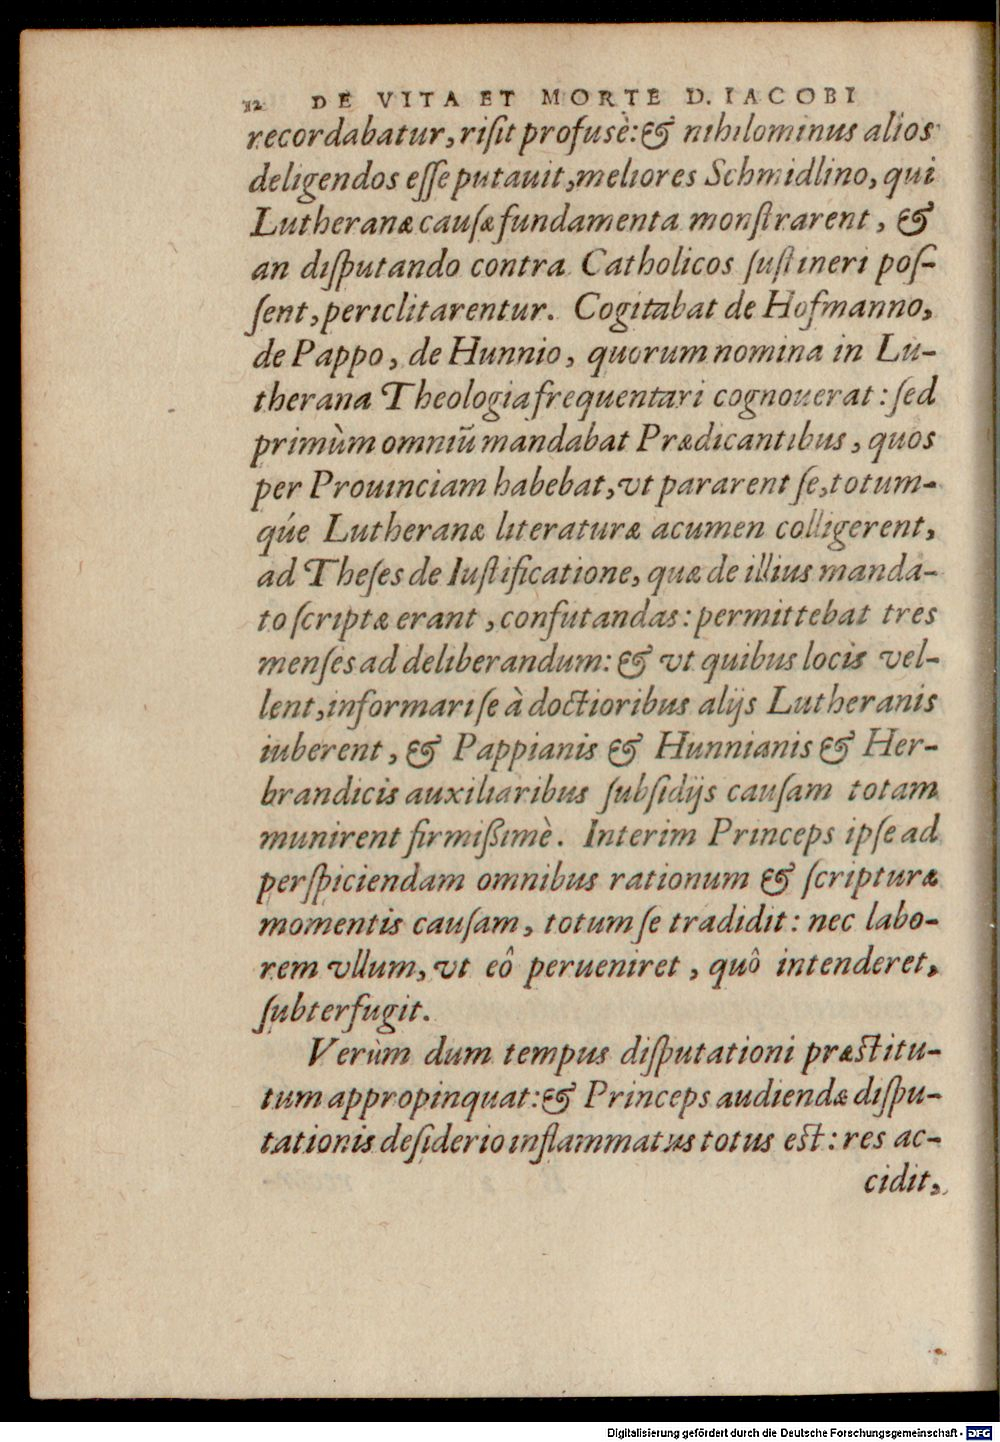 12 DE VITA ET MORTE D. IACOBI
recordabatur, riſit profusè: & nihilominus alios
deligendos eſſe putauit, meliores Schmidlino, qui
Lutheranæ cauſæ fundamenta monſtrarent, &
an diſputando contra Catholicos ſuſtineri poſ-
ſent, periclitarentur. Cogitabat de Hofmanno,
de Pappo, de Hunnio, quorum nomina in Lu-
therana Theologia frequentari cognouerat: ſed
primùm omniũ mandabat Prædicantibus, quos
per Prouinciam habebat, vt pararent ſe, totum-
qúe Lutheranæ literaturæ acumen colligerent,
ad Theſes de Iuſtificatione, quæ de illius manda-
to ſcriptæ erant, confutandas: permittebat tres
menſes ad deliberandum: & vt quibus locis vel-
lent, informari ſe à doctioribus alijs Lutheranis
iuberent, & Pappianis & Hunnianis & Her-
brandicis auxiliaribus ſubſidijs cauſam totam
munirent firmißimè. Interim Princeps ipſe ad
perſpiciendam omnibus rationum & ſcripturæ
momentis cauſam, totum ſe tradidit: nec labo-
rem vllum, vt eô perueniret, quô intenderet,
ſubterfugit.
Verùm dum tempus diſputationi præſtitu-
tum appropinquat: & Princeps audiendæ diſpu-
tationis deſiderio inflammatus totus eſt: res ac-
cidit,
Digitalisierung gefördert durch die Deutsche Forschungsgemeinschaft - DFG